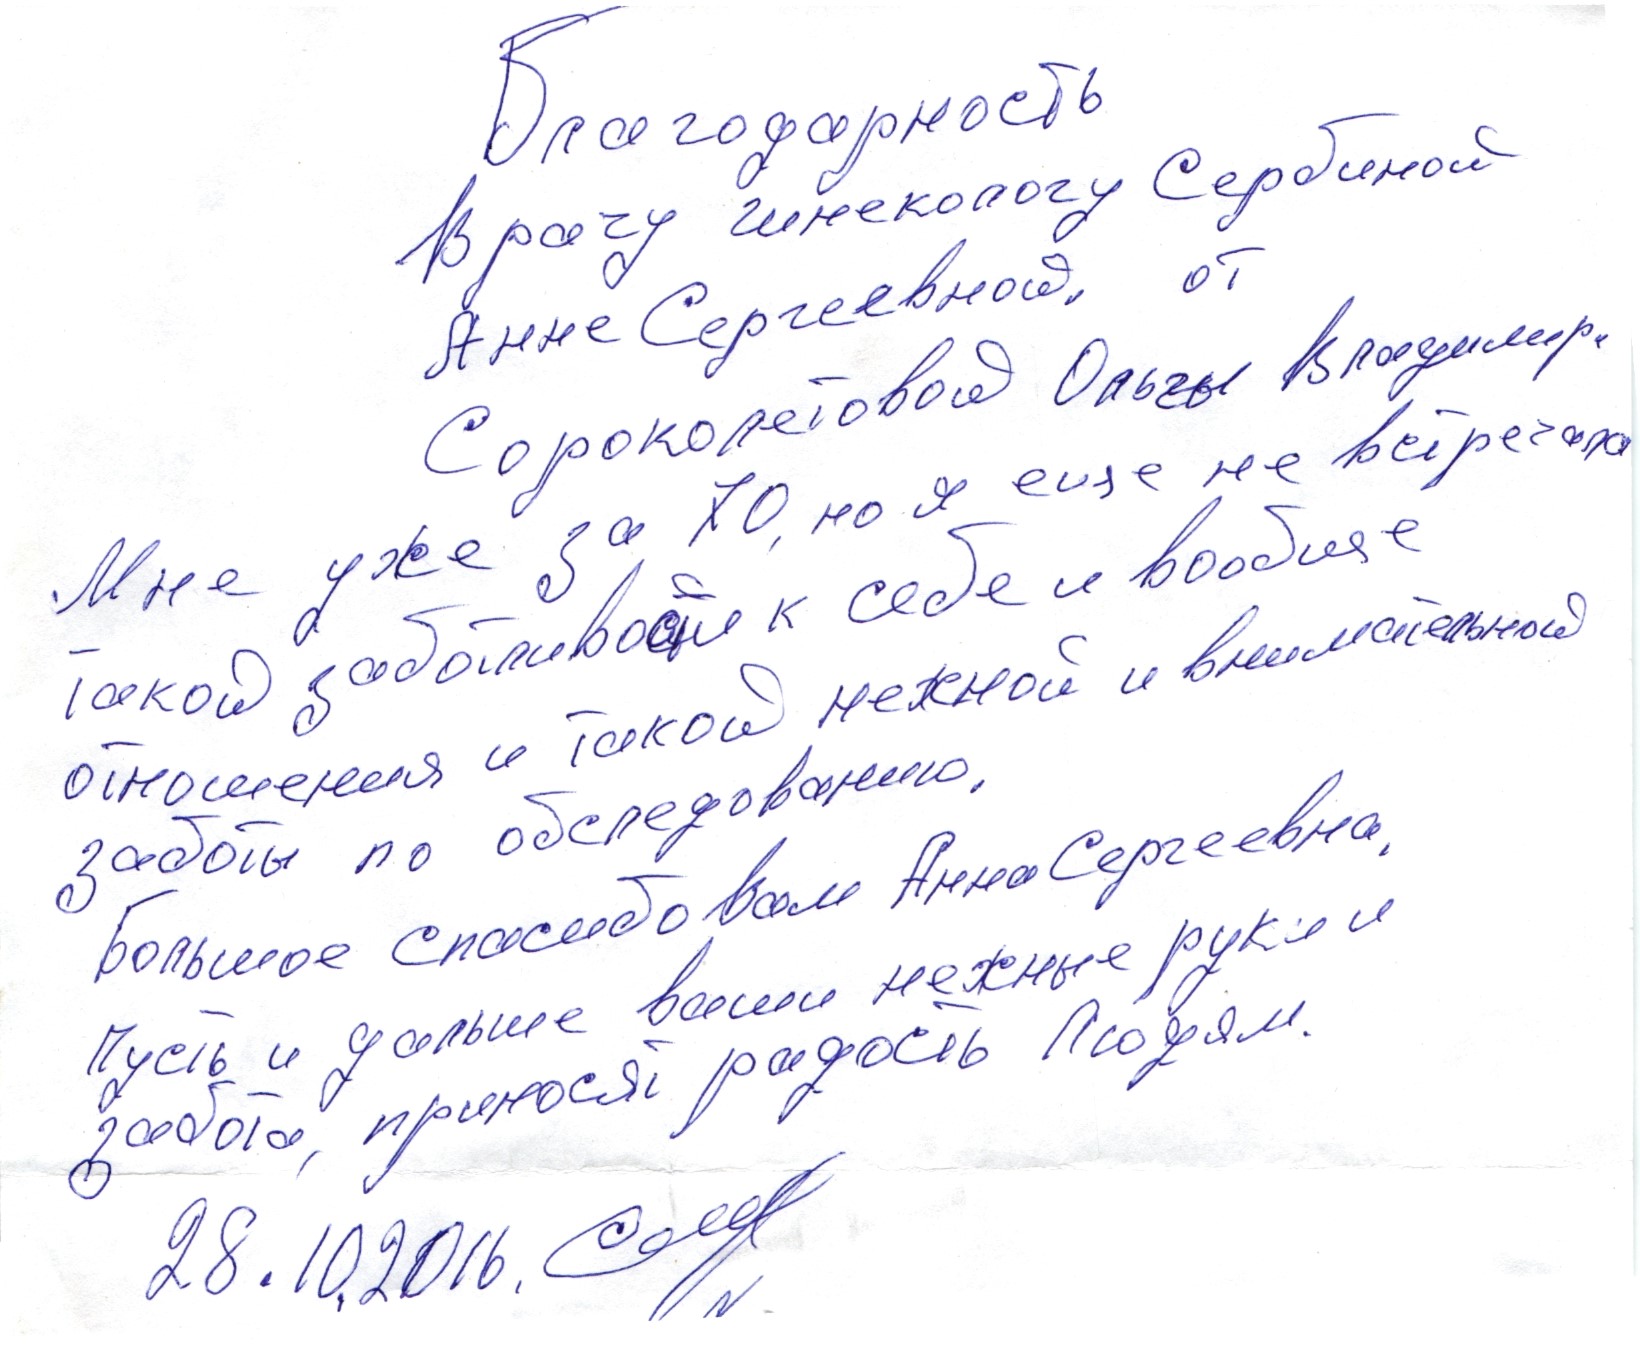 Благодарность
Врачу гинекологу Сербиной
Анне Сергеевной. от
Сороколетовой Ольги Владимир.
Мне уже за 70, но я еще не встречала
такой заботливости к себе и вообще
отношения и такой нежной и внимательной
заботы по обследованию.
Большое спасибо Вам Анна Сергеевна.
Пусть и дальше ваши нежные руки и
забота, приносят радость Людям.
28.10.2016.